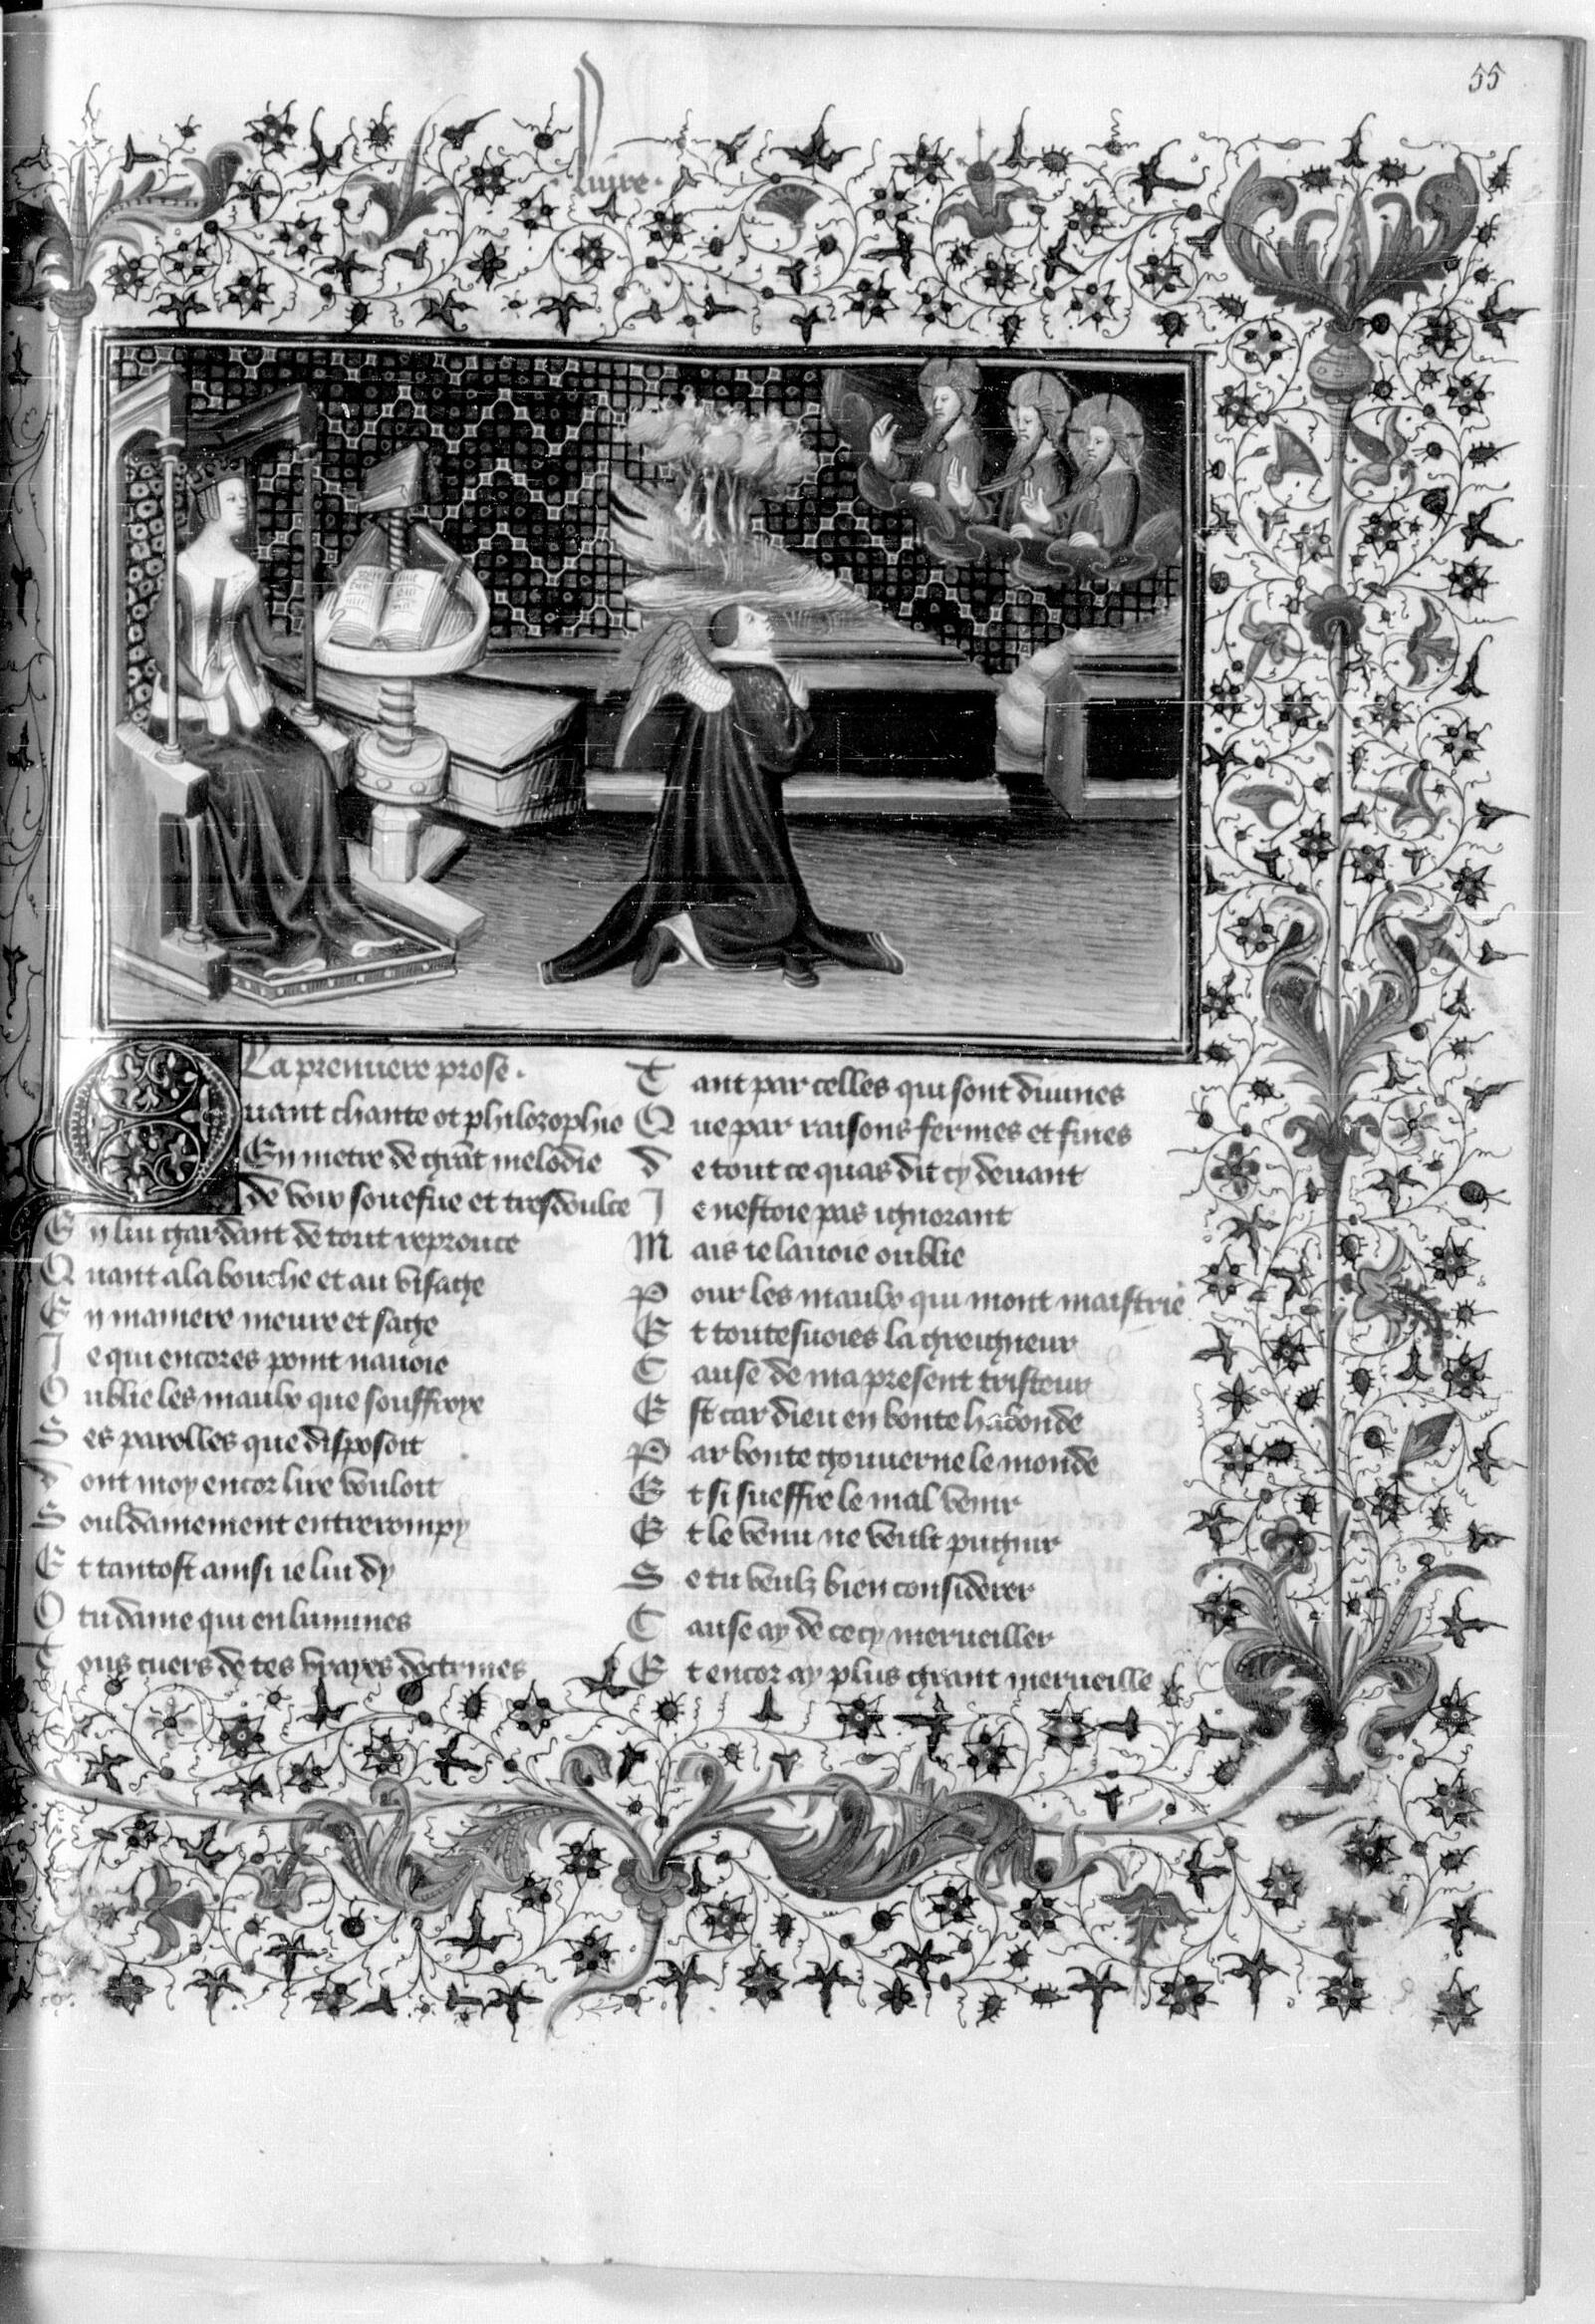 55
liure.
La premiere prose.
Quant chante ot philozophie
En metre de grãt melodie
de voix souefue et tresdoulce
En lui gardant de tout reprouce
Quant a la bouche et au visage
En maniere meure et sage
Je qui encores point nauoie
Oublie les maulx que souffroye
Ses parolles que disposoit
dont moy encor lire vouloit
Souldainement entrerompy
Et tantost ainsi ie lui dy
O tu dame qui enlumines
Tous cuers de tes vrayes doctrines
Tant par celles qui sont diuines
Que par raisons fermes et fines
de tout ce quas dit cy deuant
Je nestoie pas ignorant
Mais ie lauoie oublie
Pour les maulx qui mont maistrie
Et toutesuoies la greigneur
Cause de ma present tristeur
Est car dieu en bonte habonde
Par bonte gouuerne le monde
Et si sueffre le mal venir
Et le venu ne veult pugnir
Se tu veulz bien considerer
Cause ay de cecy merueiller
Et encor ay plus grant merueille